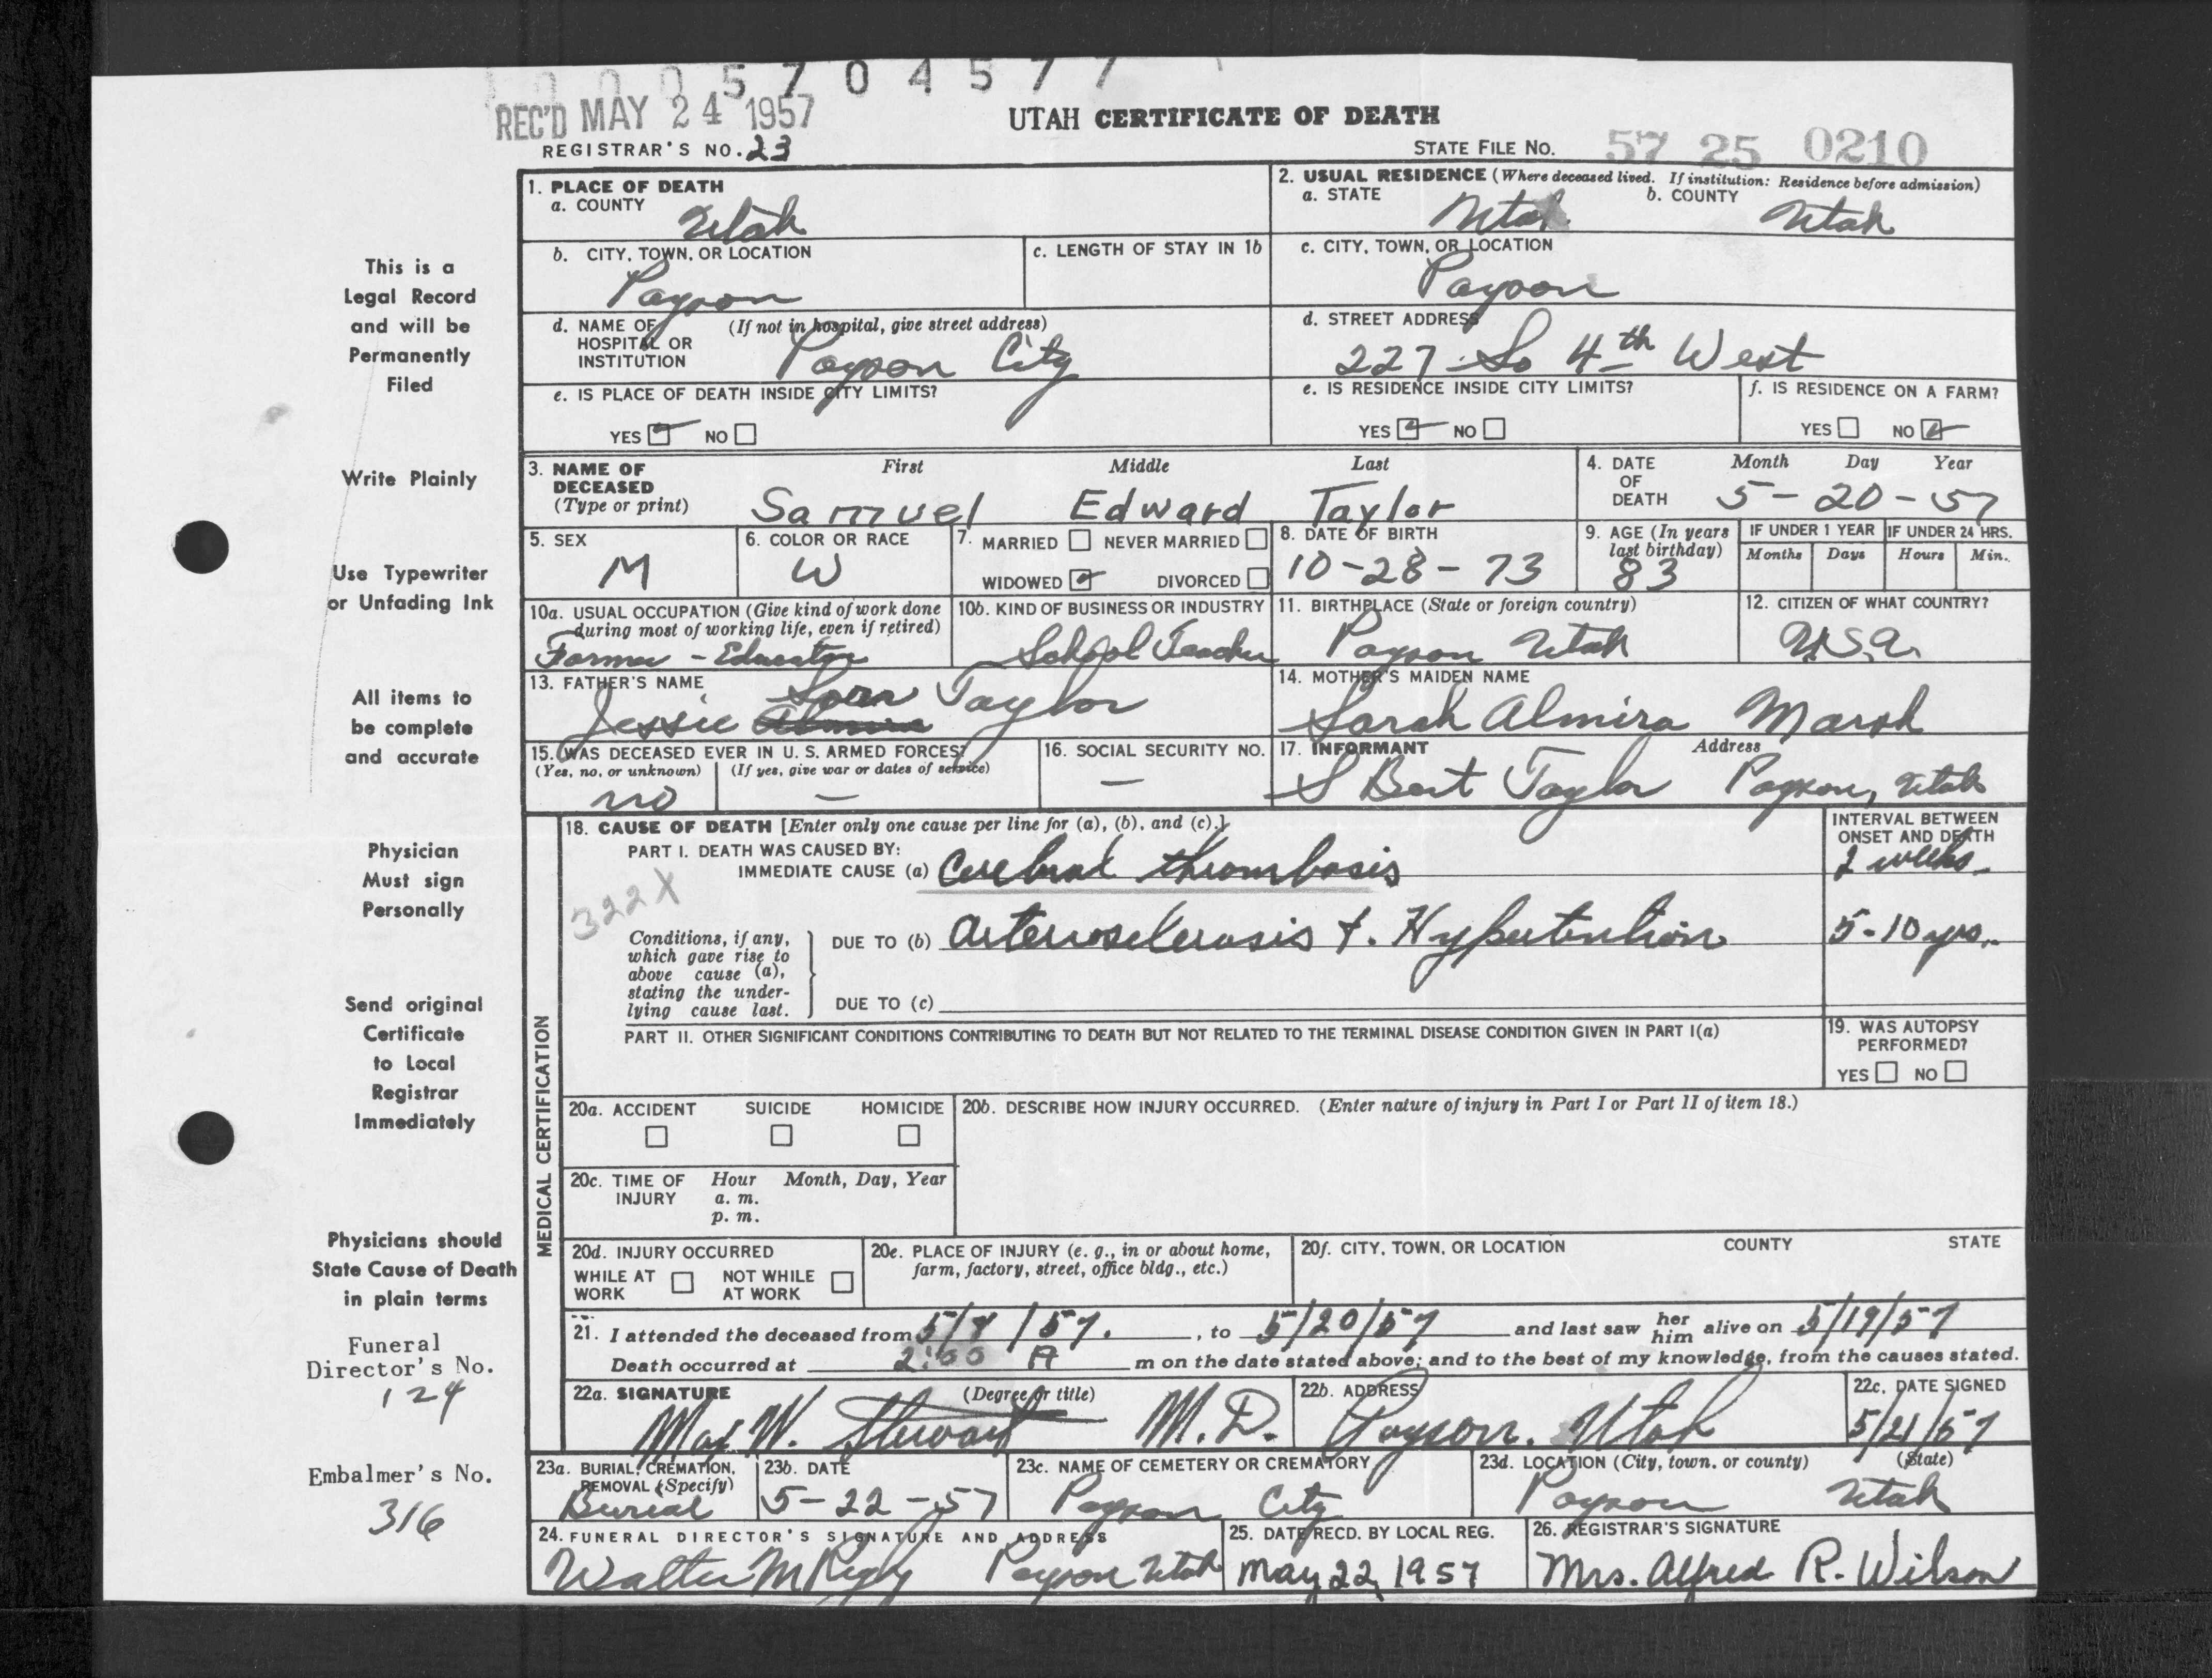 5 7 0 4 5 7 7
REC'D MAY 24 1957
UTAH CERTIFICATE OF DEATH
REGISTRAR'S NO. 23
STATE FILE NO. 57 25 0210
1. PLACE OF DEATH
a. COUNTY
Utah
2. USUAL RESIDENCE (Where deceased lived. If institution: Residence before admission)
a. STATE b. COUNTY
Utah Utah
b. CITY, TOWN, OR LOCATION
Payson
c. LENGTH OF STAY IN 1b
c. CITY, TOWN, OR LOCATION
Payson
d. NAME OF (If not in hospital, give street address)
HOSPITAL OR
INSTITUTION
Payson City
d. STREET ADDRESS
227 So 4th West
e. IS PLACE OF DEATH INSIDE CITY LIMITS?
YES NO
e. IS RESIDENCE INSIDE CITY LIMITS?
YES NO
f. IS RESIDENCE ON A FARM?
YES NO
3. NAME OF
DECEASED
(Type or print)
First Middle Last
Samuel Edward Taylor
4. DATE
OF
DEATH
Month Day Year
5-20-57
5. SEX
M
6. COLOR OR RACE
W
7. MARRIED NEVER MARRIED
WIDOWED DIVORCED
8. DATE OF BIRTH
10-28-73
9. AGE (In years
last birthday)
83
IF UNDER 1 YEAR
Months Days
IF UNDER 24 HRS.
Hours Min.
10a. USUAL OCCUPATION (Give kind of work done
during most of working life, even if retired)
Farmer - Educator
10b. KIND OF BUSINESS OR INDUSTRY
School Teacher
11. BIRTHPLACE (State or foreign country)
Payson Utah
12. CITIZEN OF WHAT COUNTRY?
U.S.A.
13. FATHER'S NAME
Jessie Almira Taylor
14. MOTHER'S MAIDEN NAME
Sarah Almira Marsh
15. WAS DECEASED EVER IN U. S. ARMED FORCES?
(Yes, no, or unknown) (If yes, give war or dates of service)
no —
16. SOCIAL SECURITY NO.
—
17. INFORMANT Address
S Bert Taylor Payson, Utah
MEDICAL CERTIFICATION
18. CAUSE OF DEATH [Enter only one cause per line for (a), (b), and (c).]
PART I. DEATH WAS CAUSED BY:
IMMEDIATE CAUSE (a) Cerebral thrombosis
INTERVAL BETWEEN
ONSET AND DEATH
2 weeks.
322X
Conditions, if any,
which gave rise to
above cause (a),
stating the under-
lying cause last.
DUE TO (b) Arteriosclerosis + Hypertention
5-10 yrs.
DUE TO (c)
PART II. OTHER SIGNIFICANT CONDITIONS CONTRIBUTING TO DEATH BUT NOT RELATED TO THE TERMINAL DISEASE CONDITION GIVEN IN PART I(a)
19. WAS AUTOPSY
PERFORMED?
YES NO
20a. ACCIDENT SUICIDE HOMICIDE
20b. DESCRIBE HOW INJURY OCCURRED. (Enter nature of injury in Part I or Part II of item 18.)
20c. TIME OF Hour Month, Day, Year
INJURY a. m.
p. m.
20d. INJURY OCCURRED
WHILE AT NOT WHILE
WORK AT WORK
20e. PLACE OF INJURY (e. g., in or about home,
farm, factory, street, office bldg., etc.)
20f. CITY, TOWN, OR LOCATION COUNTY STATE
21. I attended the deceased from 5/7/57. , to 5/20/57 and last saw her him alive on 5/19/57
Death occurred at 2:00 A m on the date stated above; and to the best of my knowledge, from the causes stated.
22a. SIGNATURE (Degree or title)
Max W. Stewart M.D.
22b. ADDRESS
Payson. Utah
22c. DATE SIGNED
5/21/57
23a. BURIAL, CREMATION,
REMOVAL (Specify)
Burial
23b. DATE
5-22-57
23c. NAME OF CEMETERY OR CREMATORY
Payson City
23d. LOCATION (City, town, or county) (State)
Payson Utah
24. FUNERAL DIRECTOR'S SIGNATURE AND ADDRESS
Walter M Rigby Payson Utah
25. DATE RECD. BY LOCAL REG.
May 22, 1957
26. REGISTRAR'S SIGNATURE
Mrs. Alfred R. Wilson
This is a
Legal Record
and will be
Permanently
Filed
Write Plainly
Use Typewriter
or Unfading Ink
All items to
be complete
and accurate
Physician
Must sign
Personally
Send original
Certificate
to Local
Registrar
Immediately
Physicians should
State Cause of Death
in plain terms
Funeral
Director's No.
124
Embalmer's No.
316